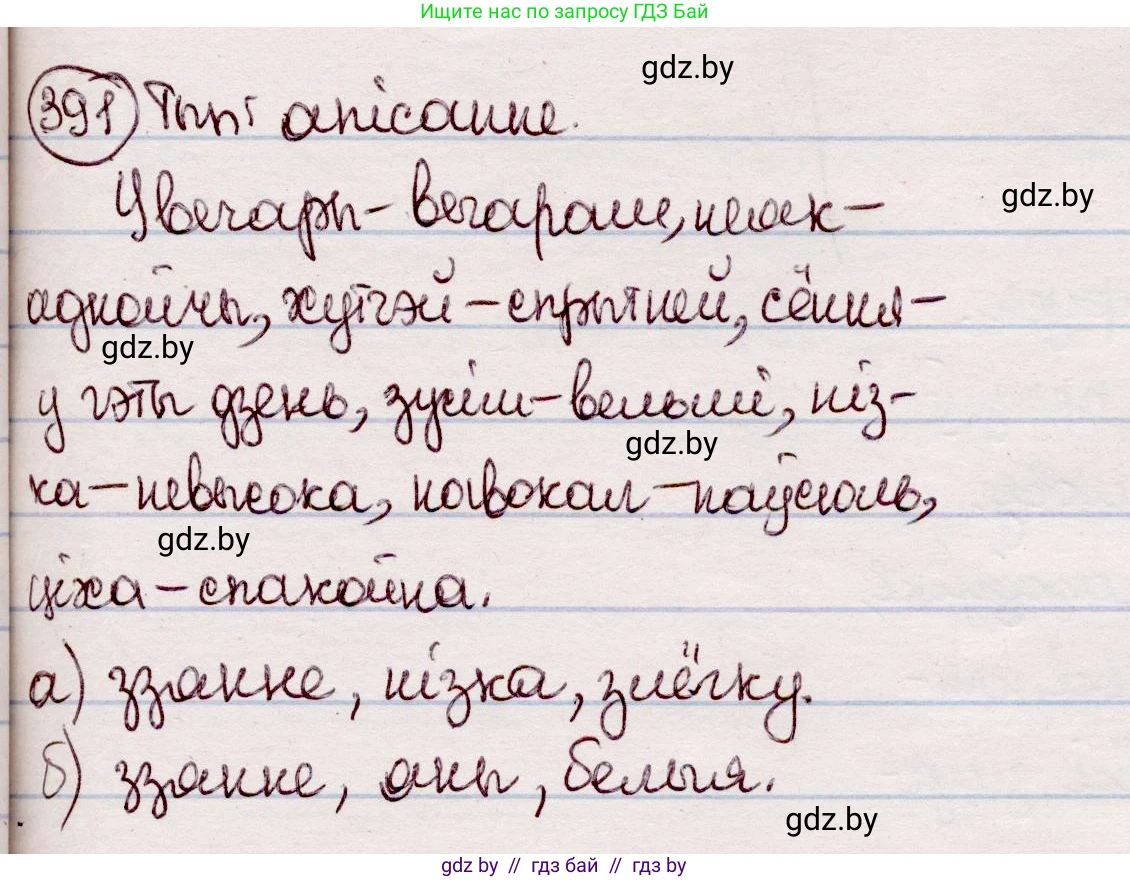 Ищите нас по запросу ГДЗ Бай
gdz.by
391 Тып: апісанне.
gdz.by
Увечары – вечарам, неяк –
аднойчы, хутчэй – спрытней, сёння –
gdz.by
у гэты дзень, зусім – вельмі, ніз-
gdz.by
ка – невысока, навокал – паўсюль,
gdz.by
ціха – спакойна.
а) ззянне, нізка, злёгку.
б) ззянне, яны, белыя.
gdz.by
gdz.by // гдз бай // гдз by